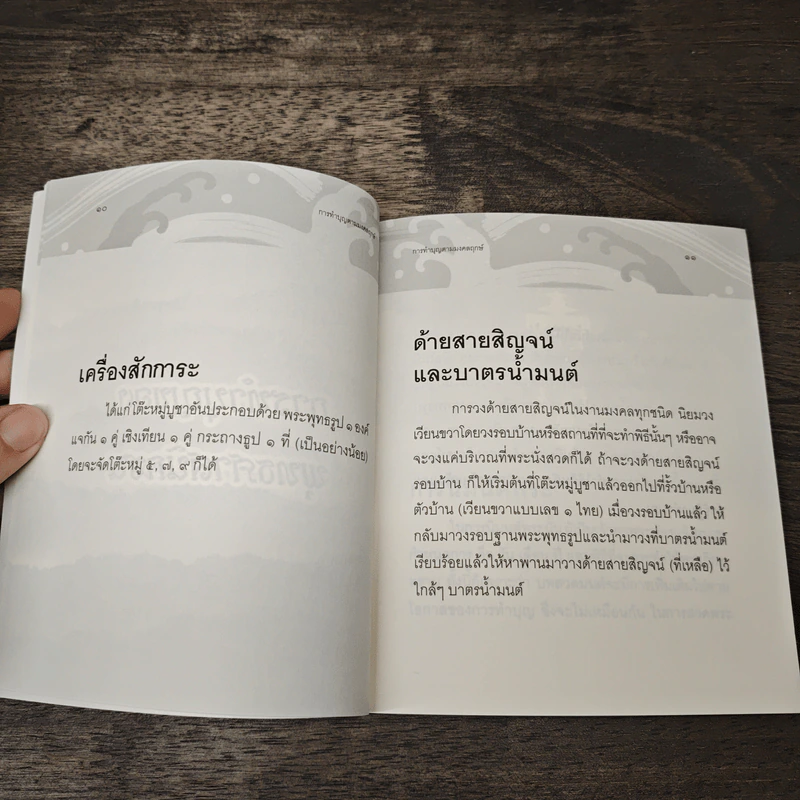 ๑๐
การทำบุญตามมงคลฤกษ์
เครื่องสักการะ
ได้แก่โต๊ะหมู่บูชาอันประกอบด้วย พระพุทธรูป ๑ องค์
แจกัน ๑ คู่ เชิงเทียน ๑ คู่ กระถางธูป ๑ ที่ (เป็นอย่างน้อย)
โดยจะจัดโต๊ะหมู่ ๕, ๗, ๙ ก็ได้
การทำบุญตามมงคลฤกษ์
๑๑
ด้ายสายสิญจน์
และบาตรน้ำมนต์
การวงด้ายสายสิญจน์ในงานมงคลทุกชนิด นิยมวง
เวียนขวาโดยวงรอบบ้านหรือสถานที่ที่จะทำพิธีนั้นๆ หรืออาจ
จะวงแค่บริเวณที่พระนั่งสวดก็ได้ ถ้าจะวงด้ายสายสิญจน์
รอบบ้าน ก็ให้เริ่มต้นที่โต๊ะหมู่บูชาแล้วออกไปที่รั้วบ้านหรือ
ตัวบ้าน (เวียนขวาแบบเลข ๑ ไทย) เมื่อวงรอบบ้านแล้ว ให้
กลับมาวงรอบฐานพระพุทธรูปและนำมาวงที่บาตรน้ำมนต์
เรียบร้อยแล้วให้หาพานมาวางด้ายสายสิญจน์ (ที่เหลือ) ไว้
ใกล้ๆ บาตรน้ำมนต์